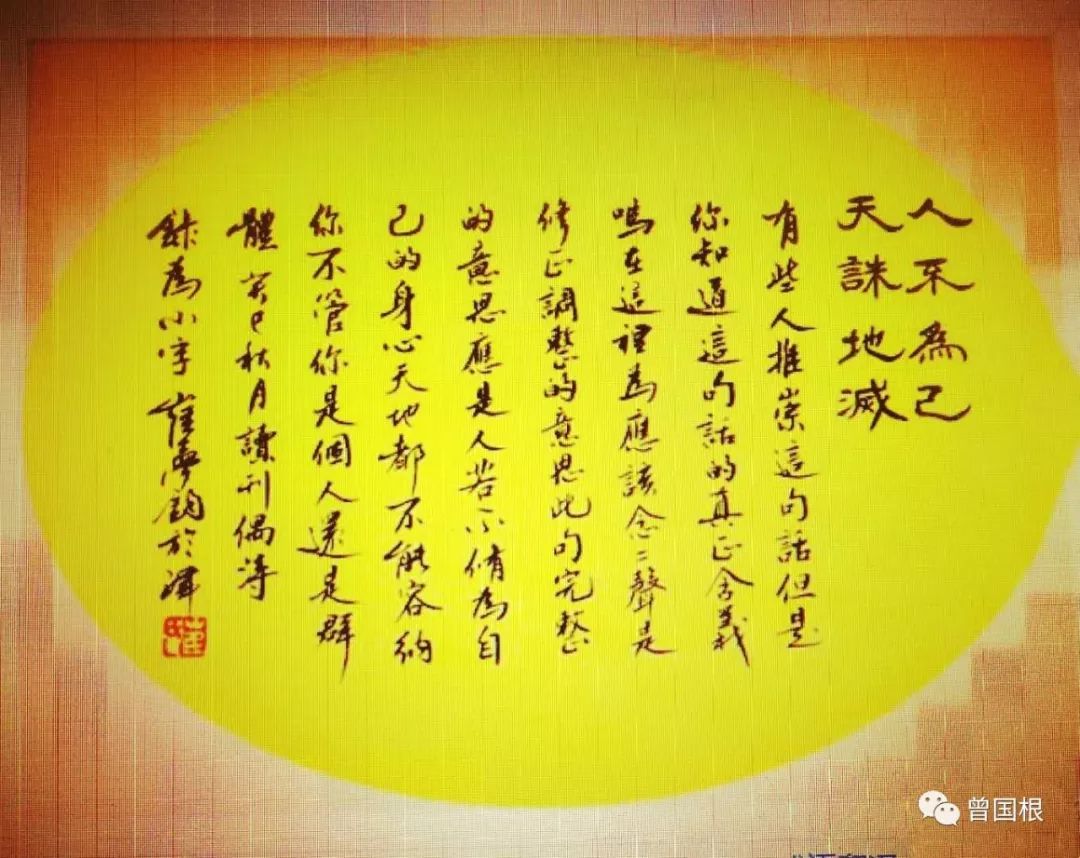 人不為己
天誅地滅
有些人推崇這句話但是
你知道這句話的真正含義
嗎在這裡為應該念二聲是
修正調整的意思此句完整
的意思應是人若不脩為自
己的身心天地都不能容納
你不管你是個人還是群
體 癸巳秋月讀刊偶得
為小字 崔
曾国根